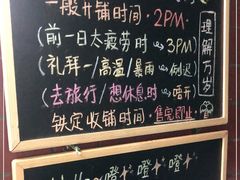 一般开铺时间·2PM·
(前一日太疲劳时⤳3PM)
(礼拜一/高温/暴雨⤳倒迟)
(去旅行/想休息时⤳唔开)
铁定收铺时间·售完即止·
理解万岁